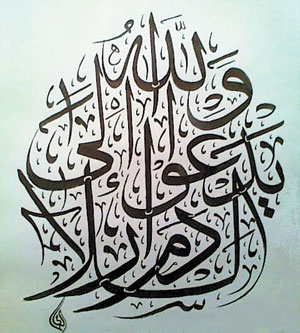 وَاللهُ يَدعُوا إِلَى دَارِ السَّلامِ